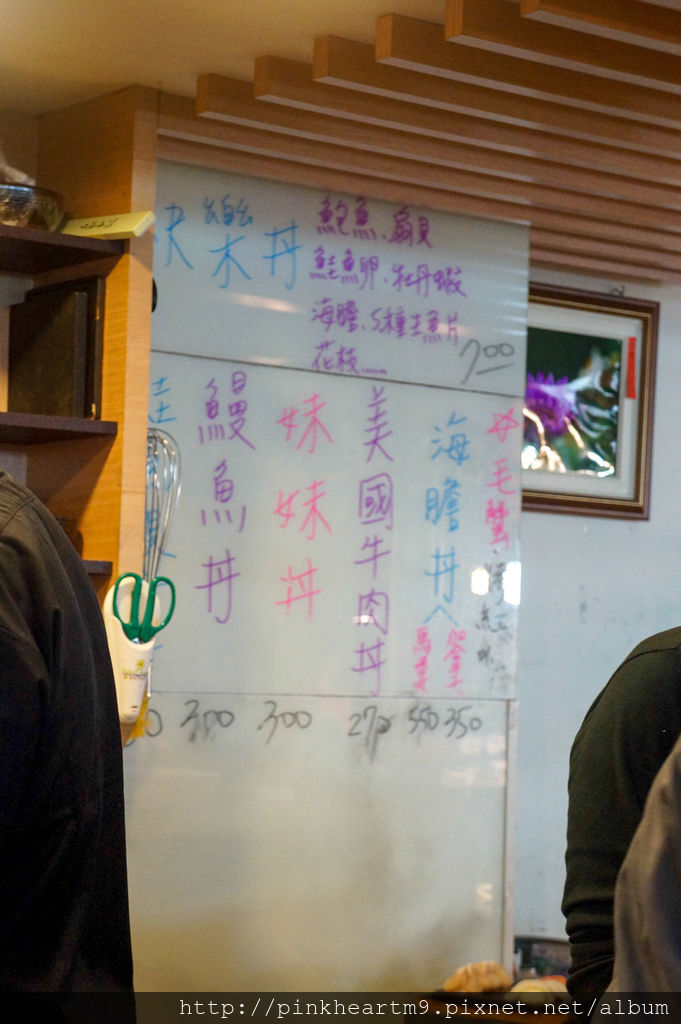 快樂丼
鮑魚、扇貝
鮭魚卵、牡丹蝦
海膽、5種生魚片
花枝……
700
母毛蟹
海膽丼
美國牛肉丼
妹妹丼
鰻魚丼
鮭
300
300
270
550
350
http://pinkheartm9.pixnet.net/album